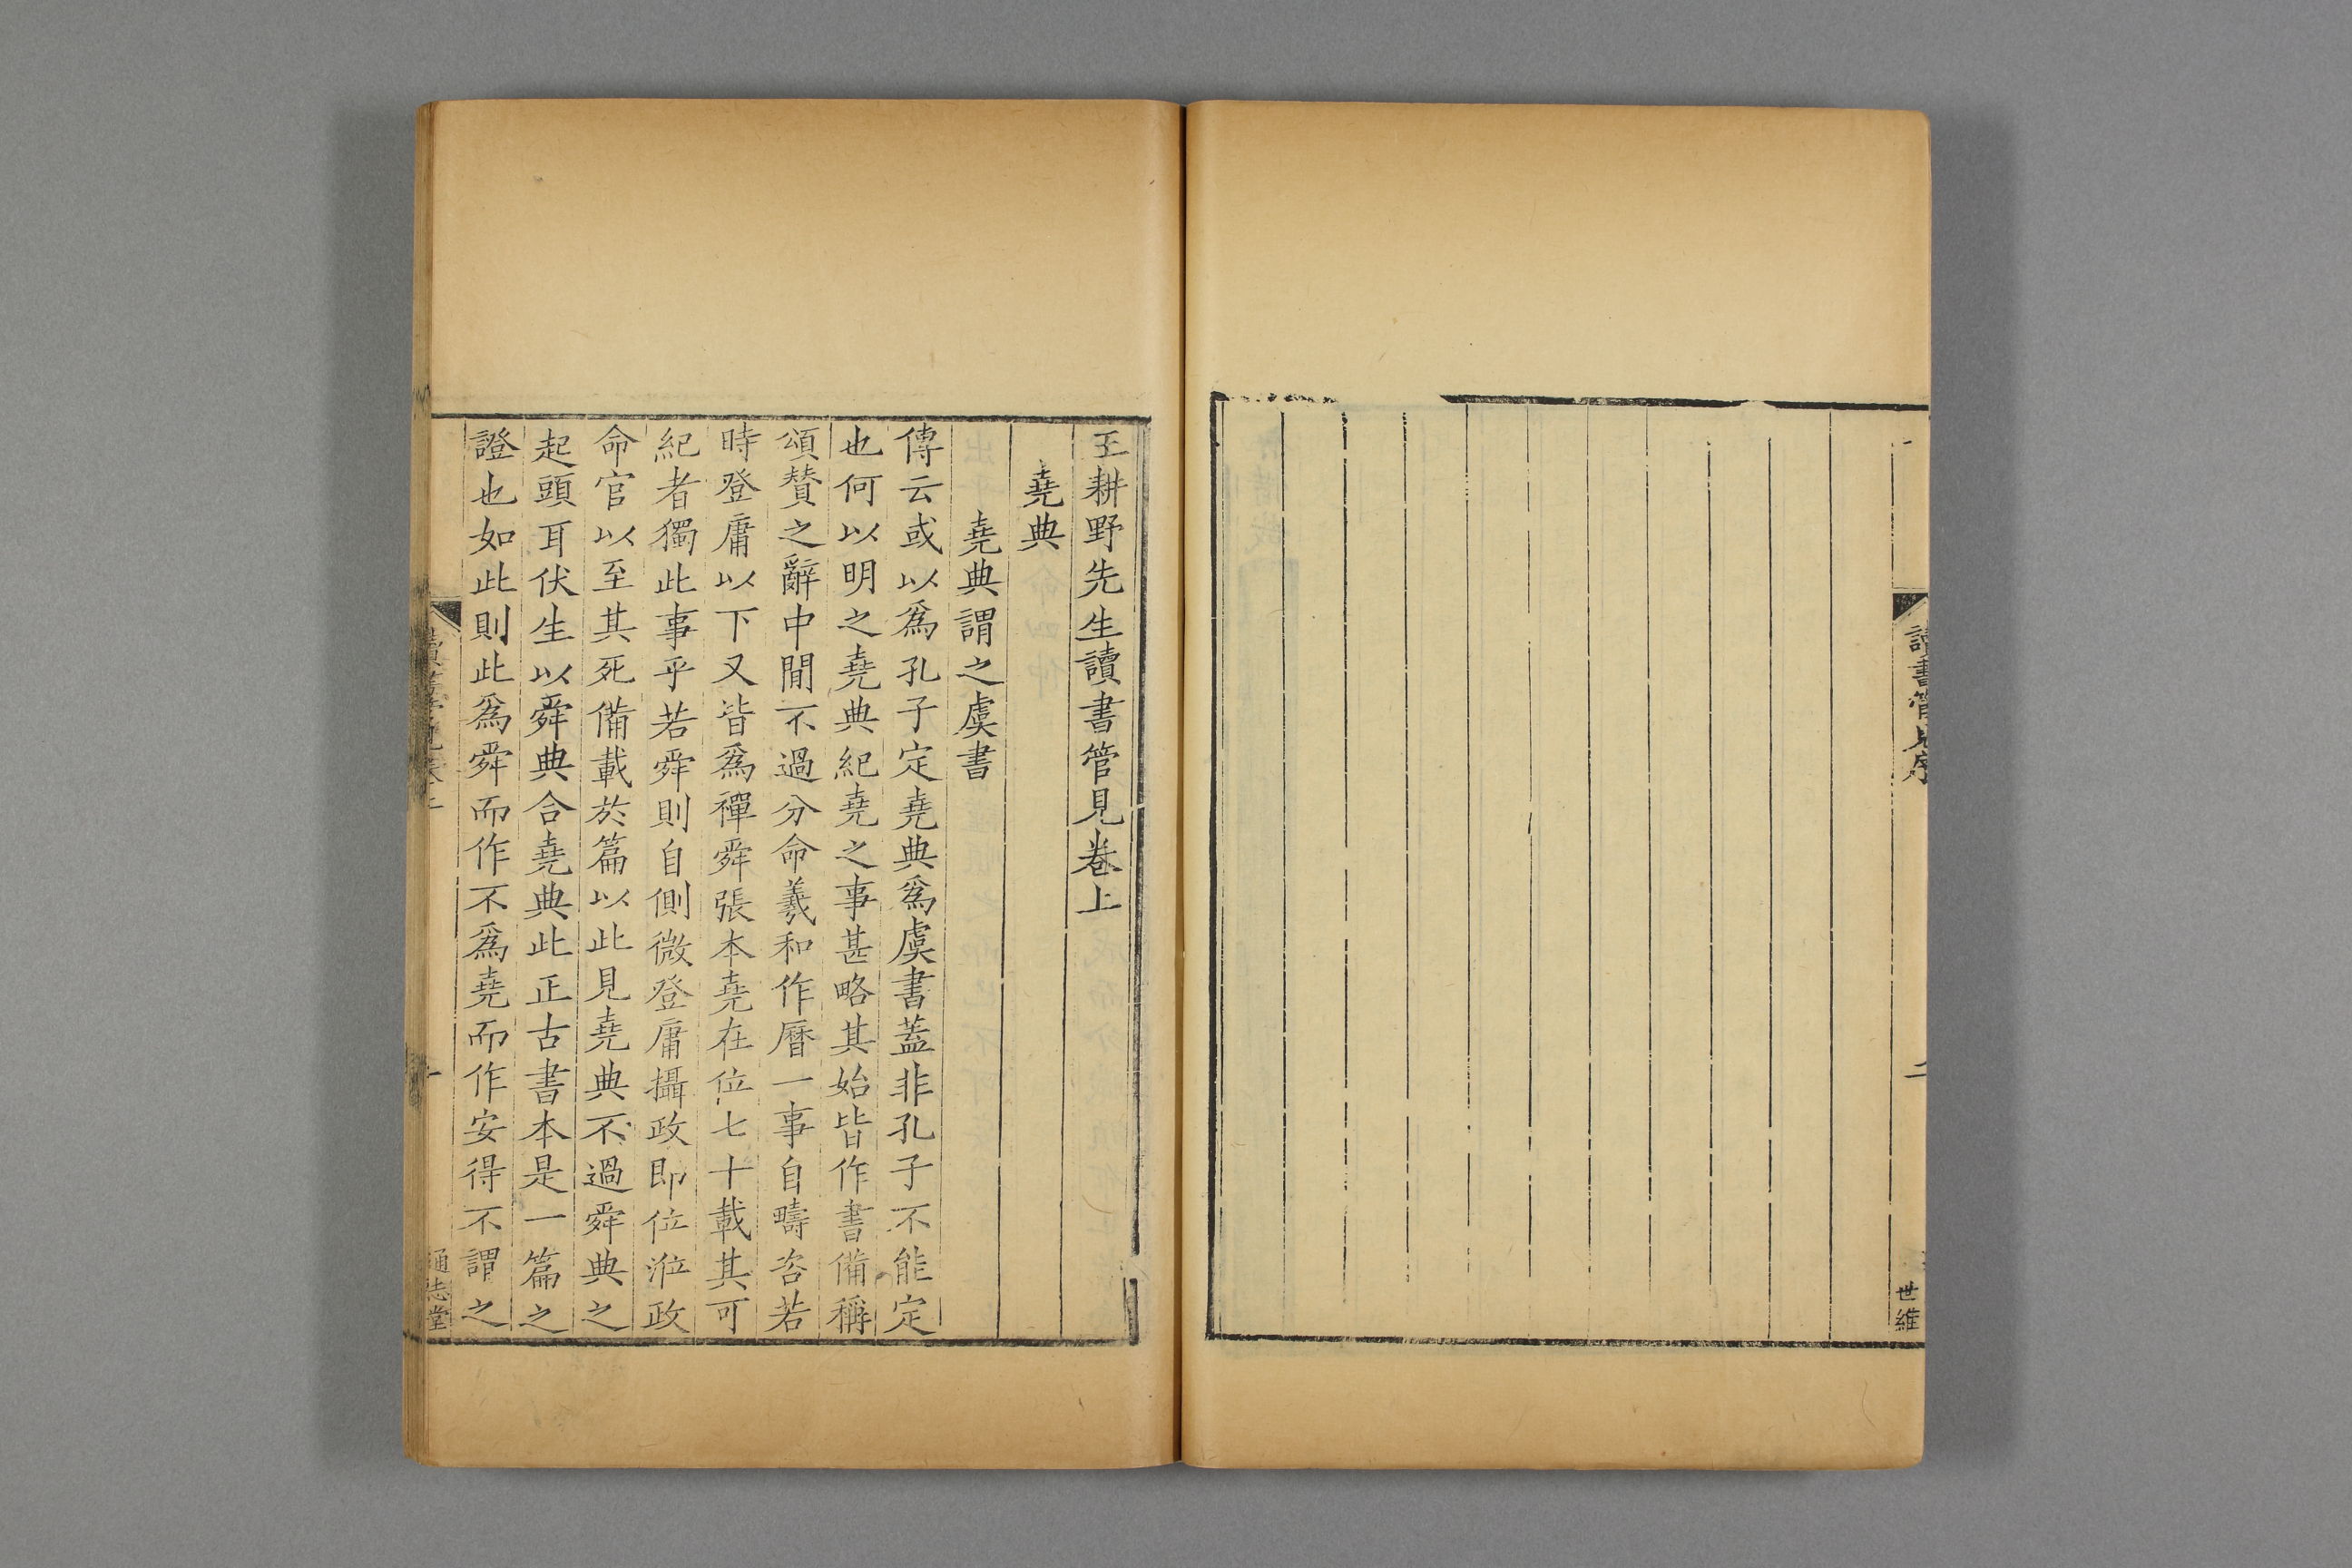 讀書管見序
二
世維
王耕野先生讀書管見卷上
堯典
堯典謂之虞書
傳云或以爲孔子定堯典爲虞書蓋非孔子不能定
也何以明之堯典紀堯之事甚略其始皆作書備稱
頌賛之辭中閒不過分命羲和作曆一事自疇咨若
時登庸以下又皆爲禪舜張本堯在位七十載其可
紀者獨此事乎若舜則自側微登庸攝政即位涖政
命官以至其死備載於篇以此見堯典不過舜典之
起頭耳伏生以舜典合堯典此正古書本是一篇之
證也如此則此爲舜而作不爲堯而作安得不謂之
一
通志堂